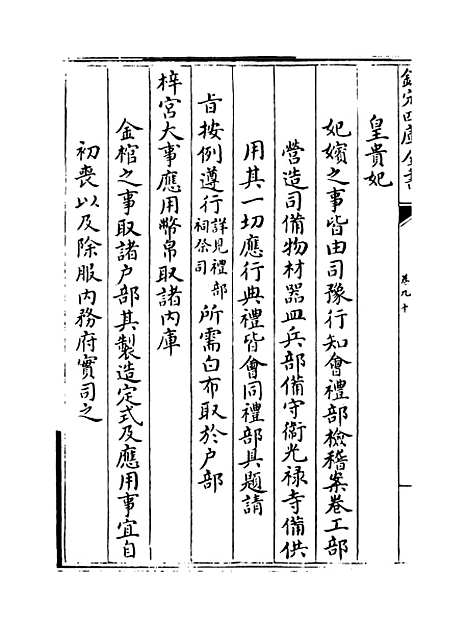 欽定四庫全書
卷九十
皇貴妃
妃嬪之事皆由司豫行知會禮部檢稽案卷工部
營造司備物材器皿兵部備守衛光禄寺備供
用其一切應行典禮皆會同禮部具題請
旨按例遵行詳見禮部祠祭司所需白布取於户部
梓宫大事應用幣帛取諸内庫
金棺之事取諸户部其製造定式及應用事宜自
初喪以及除服内務府實司之